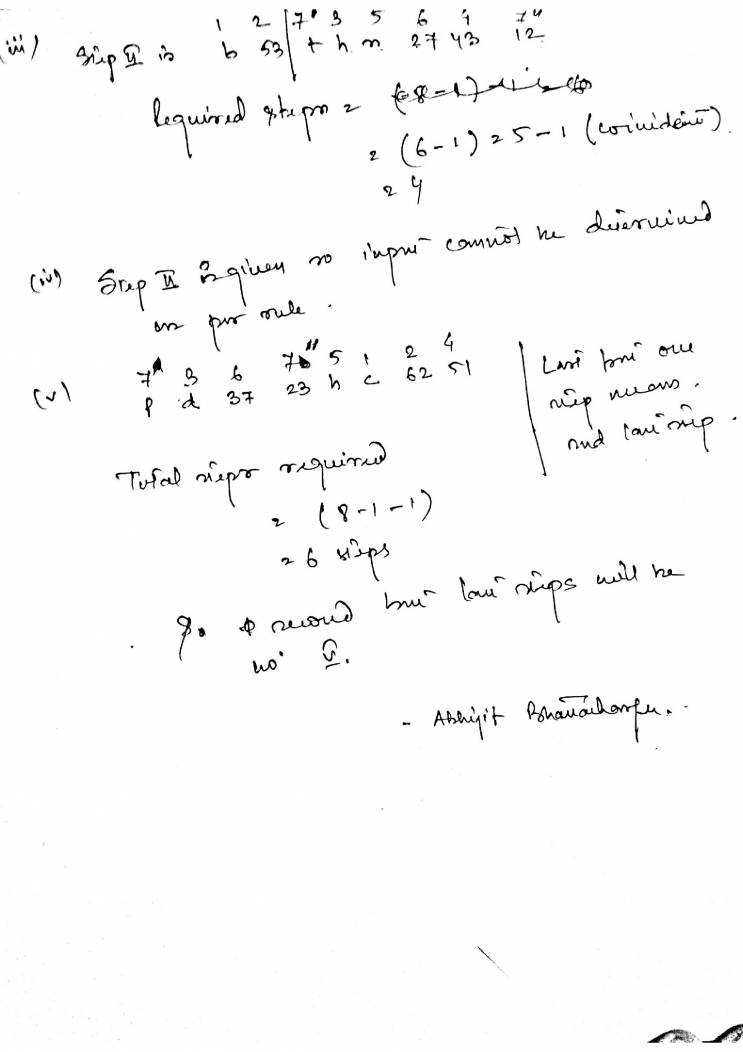 1 2 7' 3 5 6 4 7"
(iii) Step II is b 53 t h n 27 43 12
Required steps =
= (6-1) = 5-1 (coinident)
= 4
(iv) Step II is given so input cannot be determined
as per rule.
7' 3 6 7" 5 1 2 4
(v) p d 37 23 h c 62 51
Last but one
step means
2nd last step.
Total steps required
= (8-1-1)
= 6 steps
So second last steps will be
no. V.
- Abhijit Bhattacharjee.